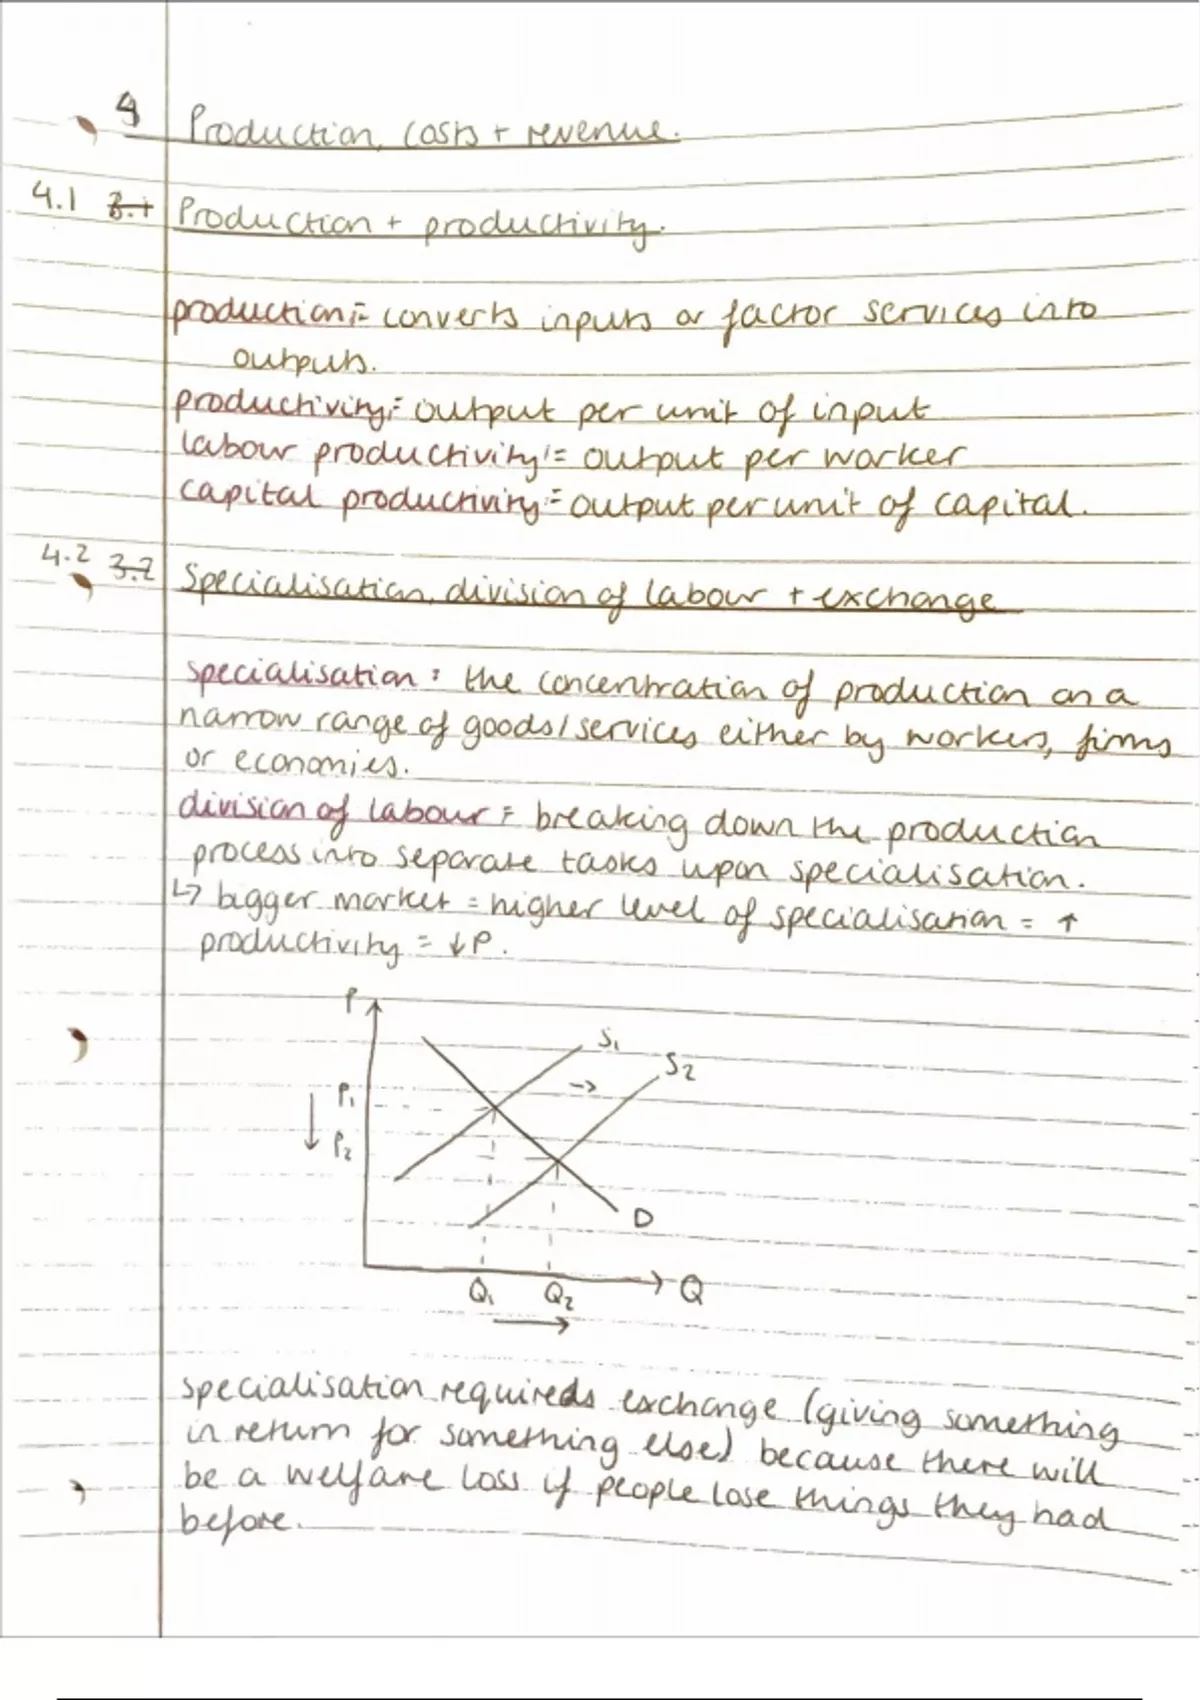 4 Production, costs + revenue.
4.1 3.1 Production + productivity.
production:= converts inputs or factor services into
outputs.
productivity:= output per unit of input
labour productivity:= output per worker
capital productivity:= output per unit of capital.
4.2 3.2 Specialisation, division of labour + exchange
specialisation: the concentration of production on a
narrow range of goods/services either by workers, firms
or economies.
division of labour:= breaking down the production
process into separate tasks upon specialisation.
↳ bigger market = higher level of specialisation = ↑
productivity = ↓P.
P
S₁
→ S₂
P₁
↓ P₂
D
Q₁ Q₂ Q
→
specialisation requireds exchange (giving something
in return for something else) because there will
be a welfare loss if people lose things they had
before.